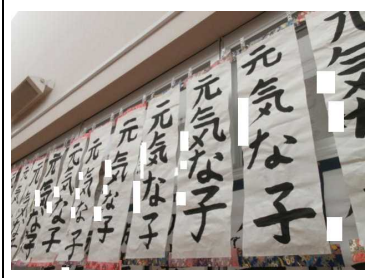 元気な子
元気な子
元気な子
元気な子
元気な子
元気な子
元気な子